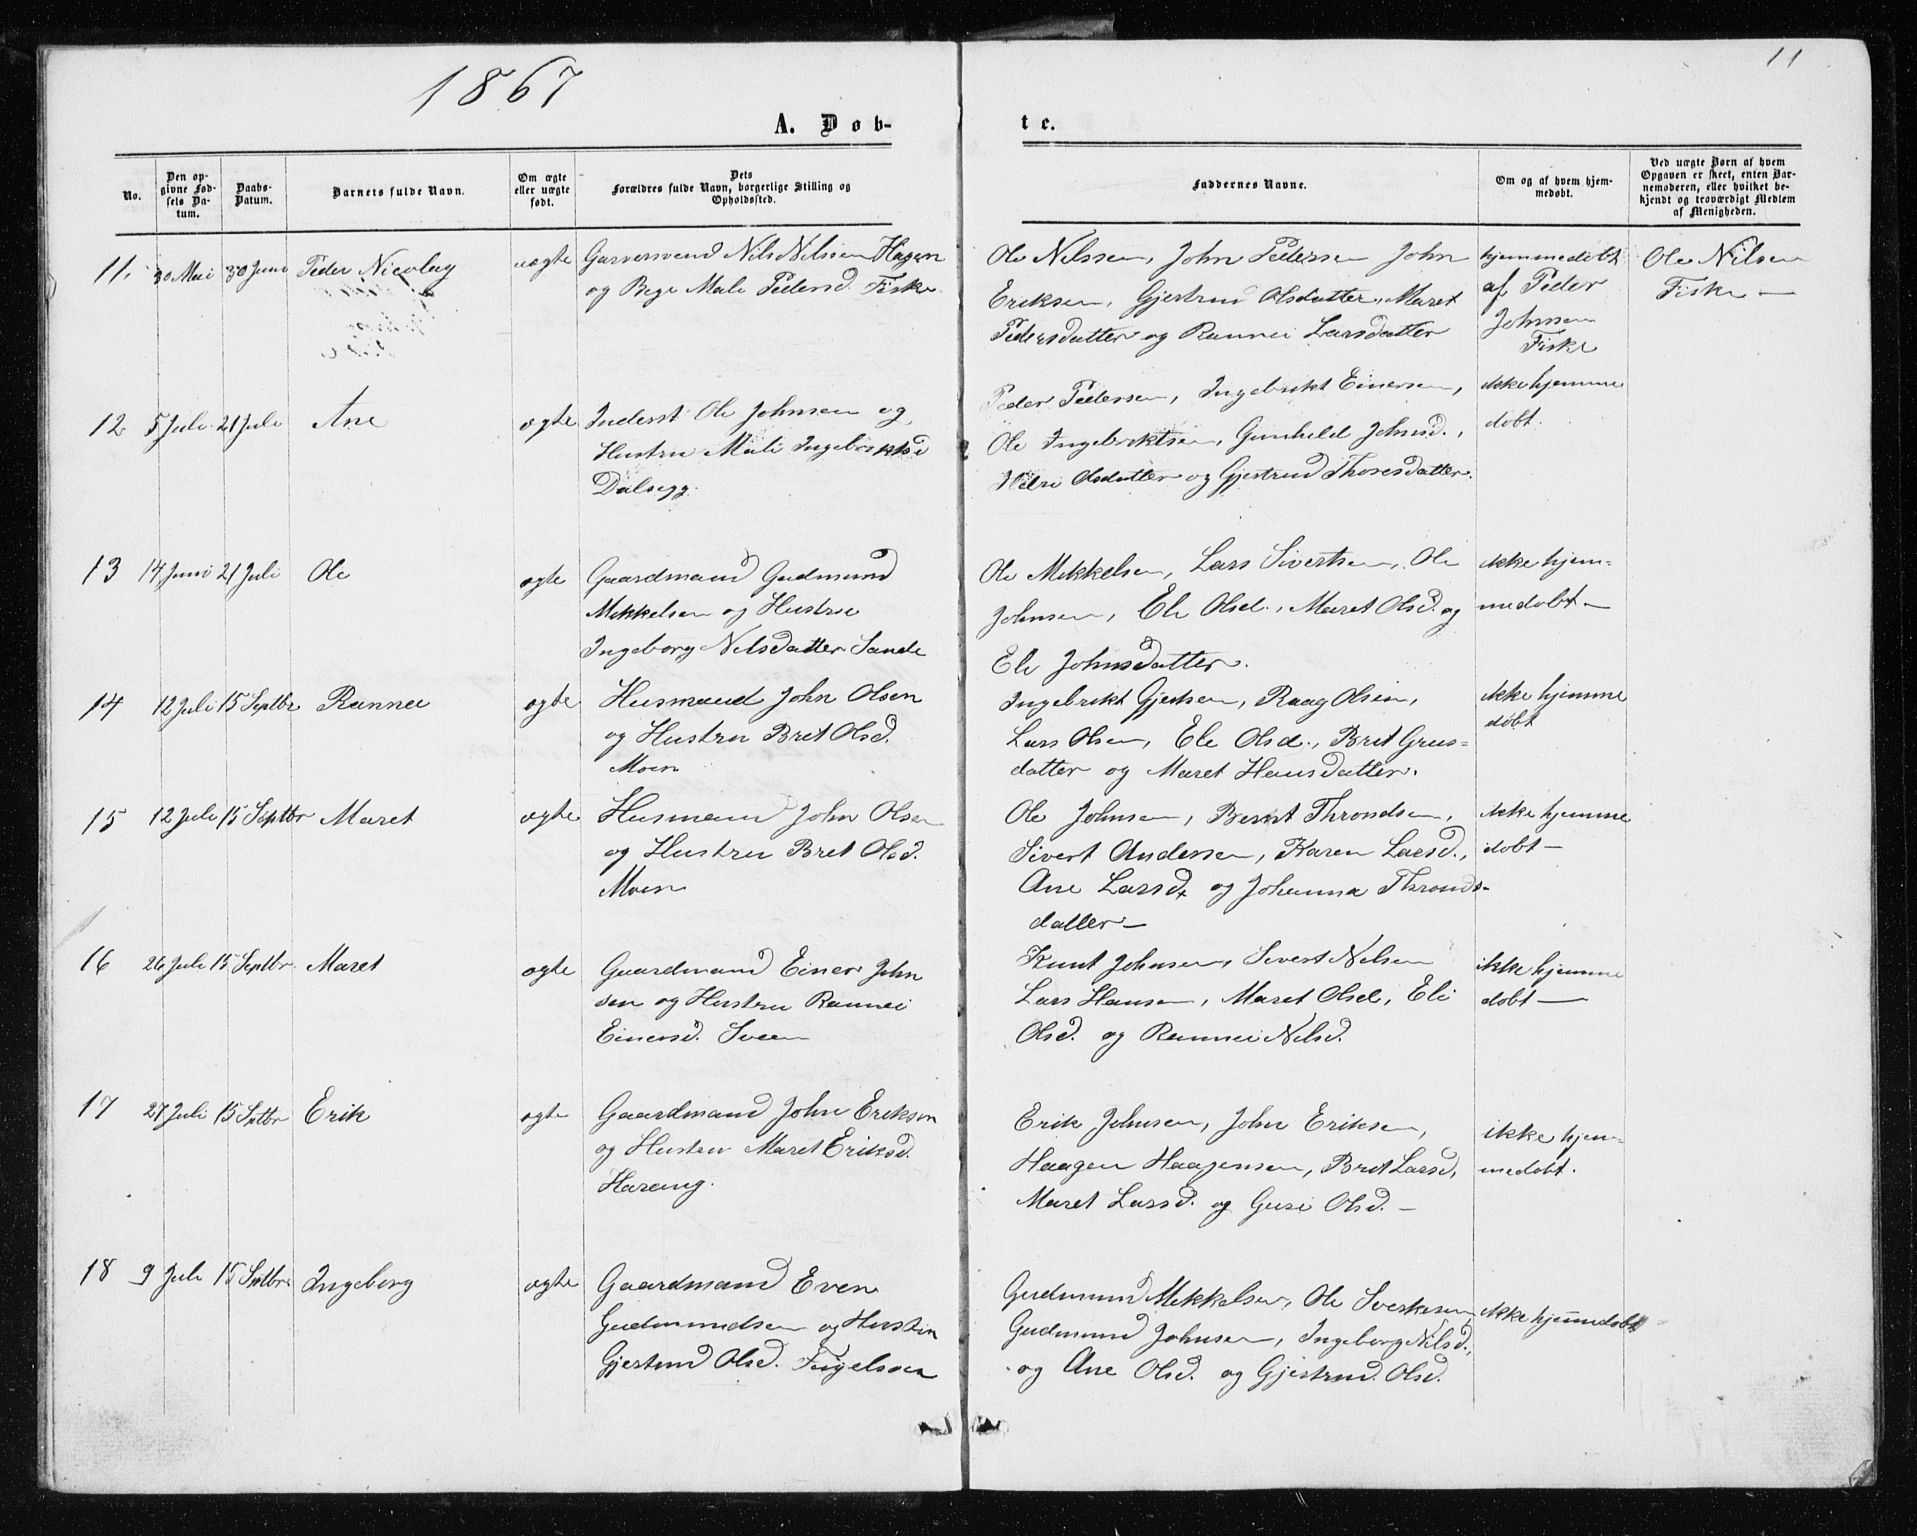 1867
11
A. Døb-
te.
No.
Den op-
givne Fød-
sels Da-
tum.
Daabs-
Datum.
Barnets fulde Navn.
Om ægte
eller uægte
født.
Dets
Forældres fulde Navn, borgerlige Stilling og
Opholdssted.
Faddernes Navne.
Om og af hvem hjem-
medøbt.
Ved uægte Børn af hvem
Opgaven er skeet, enten Bar-
nemoderen, eller hvilket be-
kjendt og troværdigt Medlem
af Menigheden.
11. 30 Mai 30 Juni Peder Nicolay uægte Garversvend Nils Nilssen Hagen
og Pige Mali Pedersd. Fiske
Ole Nilssen, John Pedersen John
Eriksen, Gjertrud Olsdatter, Maret
Pedersdatter og Rannei Larsdatter
hjemmedøbt
af Peder
Johnsen
Fiske
Ole Nilsen
Fiske —
12 5 Juli 21 Juli Ane ægte Inderst Ole Johnsen og
Hustru Mali Ingebriktsd
Dalsegg.
Peder Pedersen, Ingebrikt Einersen,
Ole Ingebriktsen, Gunhild Johnsd.,
Olsdatter og Gjertrud Thoresdatter.
ikke hjemme
døbt.
13 14 Juni 21 Juli Ole ægte Gaardmand Gudmund
Mikkelsen og Hustru
Ingeborg Nilsdatter Sande
Ole Mikkelsen, Lars Sivertsen, Ole
Johnsen, Eli Olsd., Maret Olsd. og
Eli Johnsdatter.
ikke hjem-
medøbt —
14 12 Juli 15 Septbr Rannei ægte Husmand John Olsen
og Hustru Bret Olsd.
Moen
Ingebrikt Gjertsen, Raag Olsen,
Lars Olsen, Eli Olsd., Brit Grus-
datter og Maret Hansdatter.
ikke hjemme
døbt
15 12 Juli 15 Septbr Maret ægte Husmand John Olsen
og Hustru Bret Olsd.
Moen
Ole Johnsen, Bernt Throndsen,
Sivert Andersen, Karen Larsd.,
Ane Larsd. og Johanna Thronds-
datter —
ikke hjemme
døbt —
16 26 Juli 15 Septbr. Maret ægte Gaardmand Einer John
sen og Hustru Rannei
Einersd. Sveen
Knut Johnsen, Sivert Nilsen
Lars Hansen, Maret Olsd, Eli
Olsd. og Rannei Nilsd.
ikke hjemme
døbt —
17 27 Juli 15 Sptbr Erik ægte Gaardmand John Eriksen
og Hustru Maret Eriksd.
Harang.
Erik Johnsen, John Eriksen,
Haagen Haagensen, Brit Larsd,
Maret Larsd. og Guri Olsd. —
ikke hjem-
medøbt.
18 9 Juli 15 Sptbr Ingeborg ægte Gaardmand Even
Gudmundsen og Hustru
Gjertrud Olsd. Fugelsøen
Gudmund Mikkelsen, Ole Sivertsen,
Gudmund Johnsen, Ingeborg Nilsd.,
og Ane Olsd. og Gjertrud Olsd.
ikke hjemmedøbt